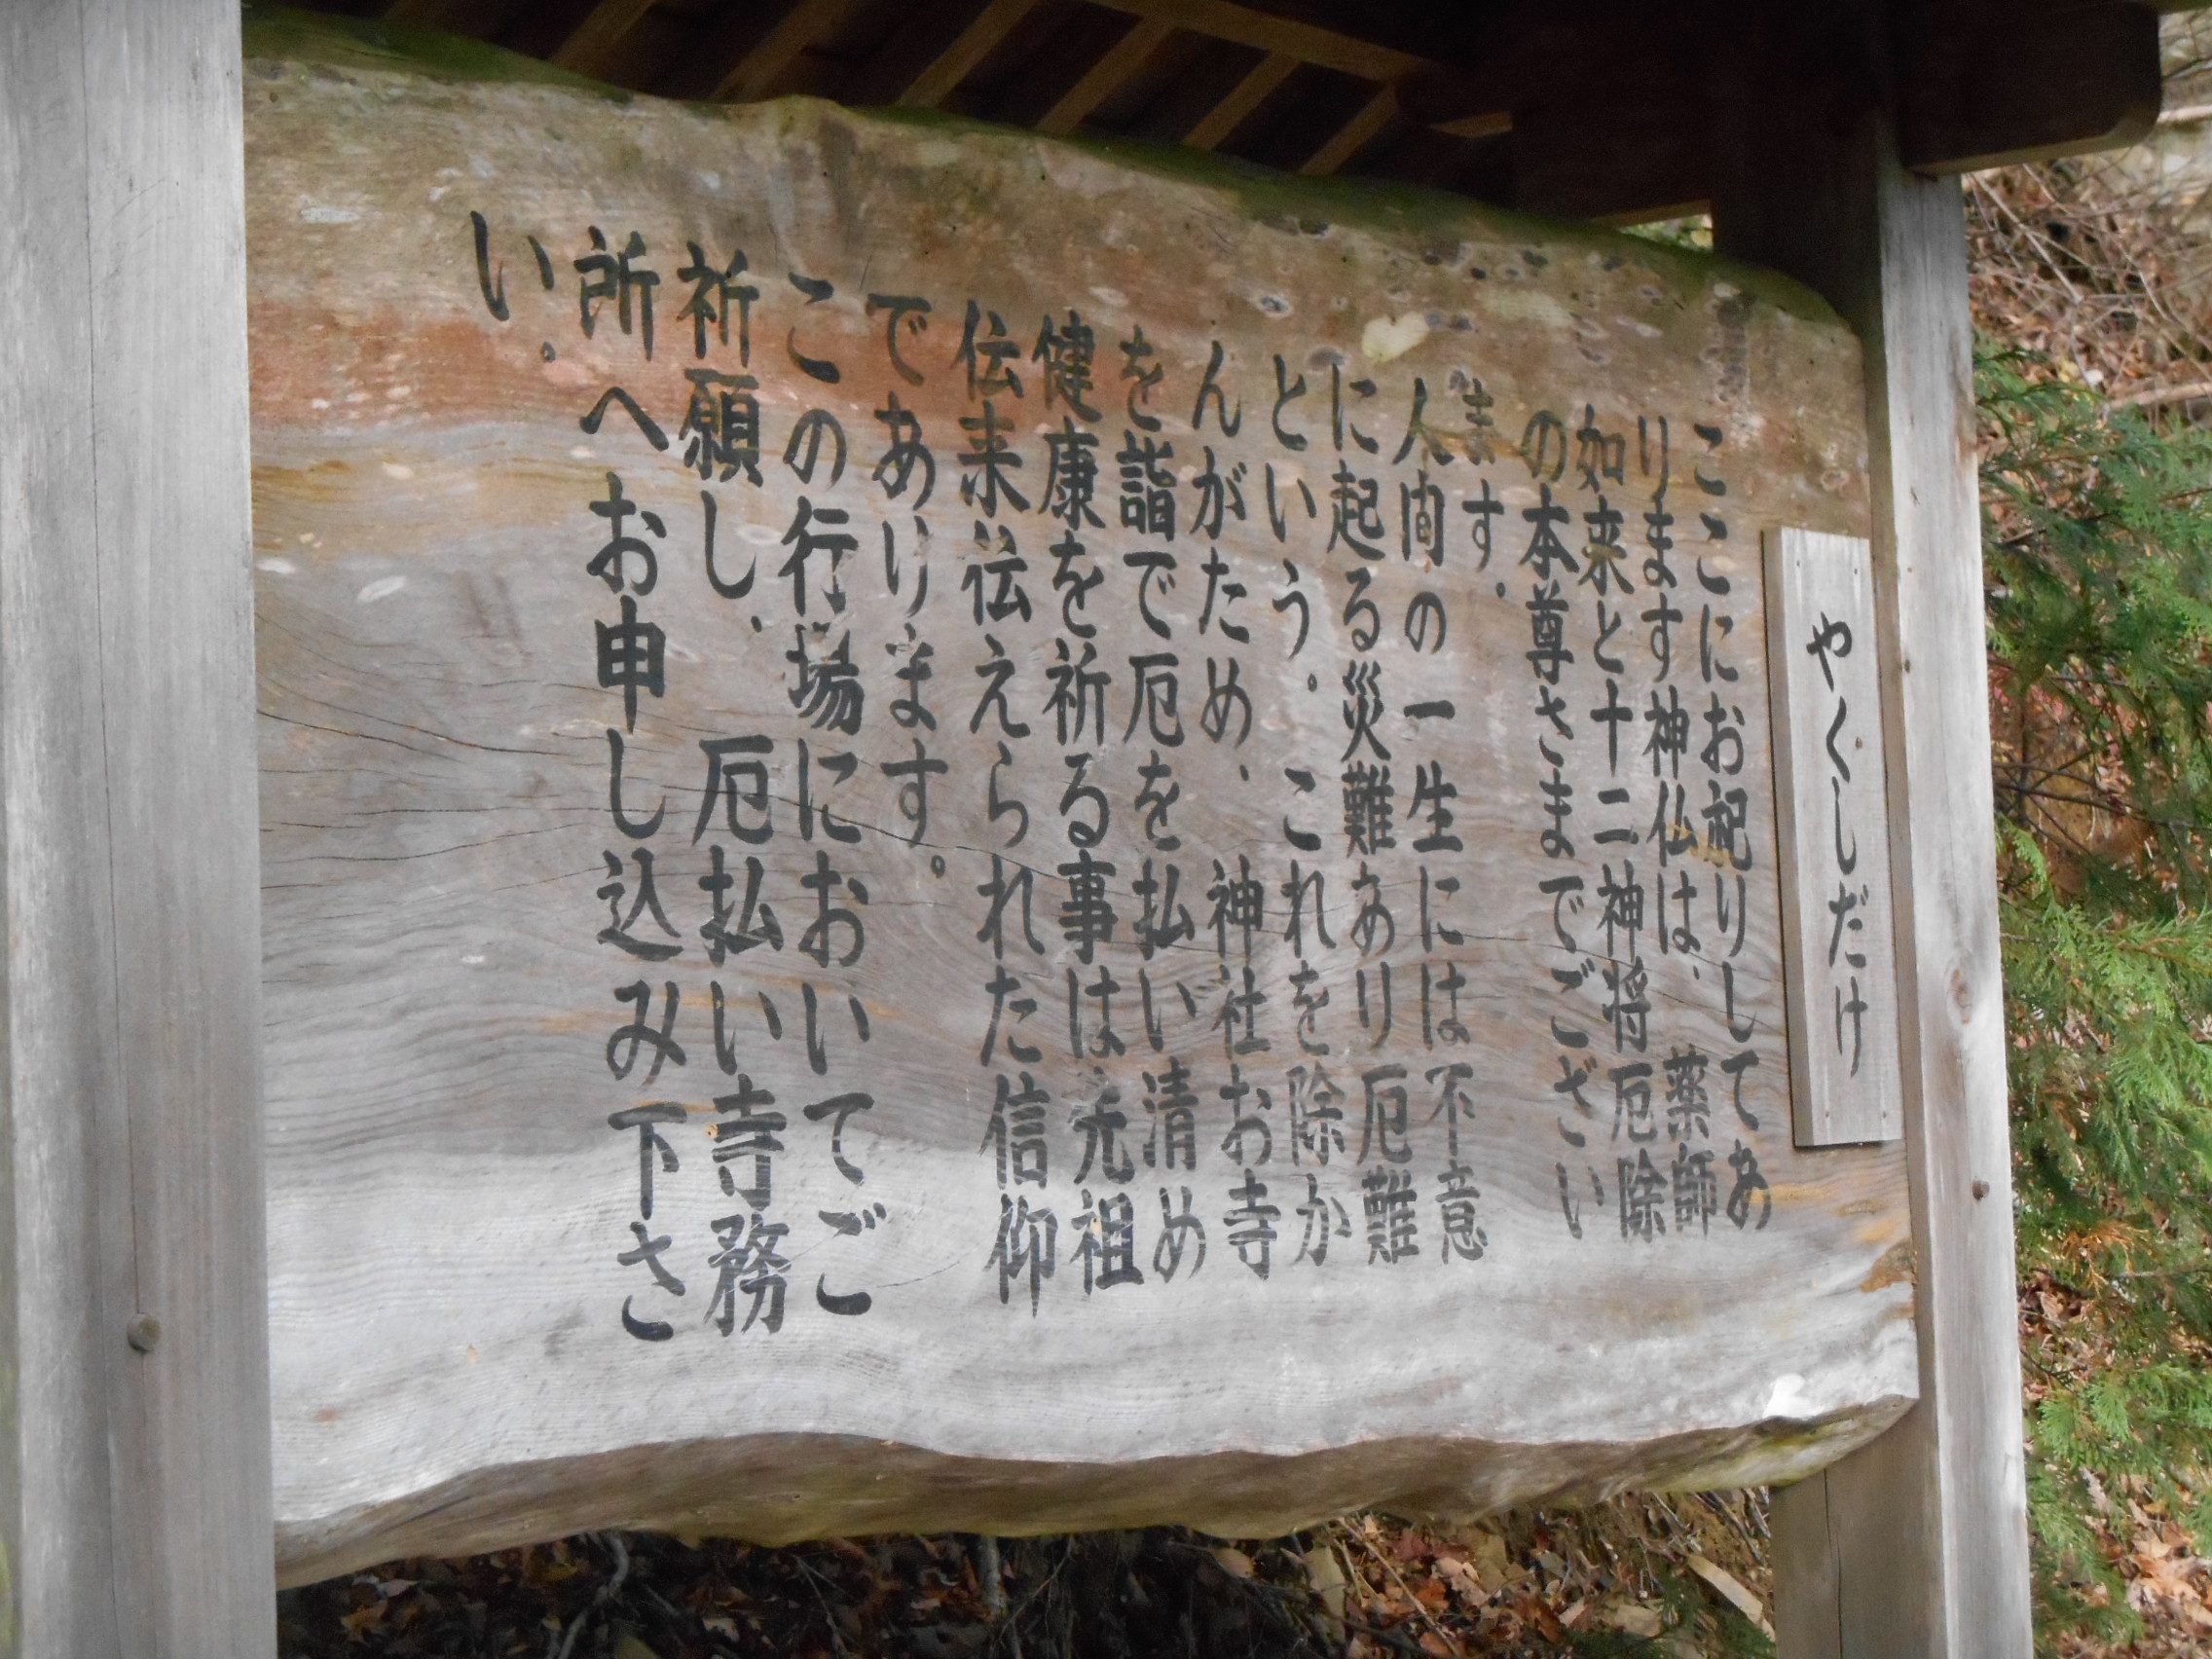 やくしだけ
ここにお祀りしてあ
ります神仏は、薬師
如来と十二神将厄除
の本尊さまでござい
ます。
人間の一生には不意
に起る災難あり厄難
という。これを除か
んがため、神社お寺
を詣で厄を払い清め
健康を祈る事は元祖
伝来伝えられた信仰
であります。
この行場においてご
祈願し、厄払い寺務
所へお申し込み下さ
い。